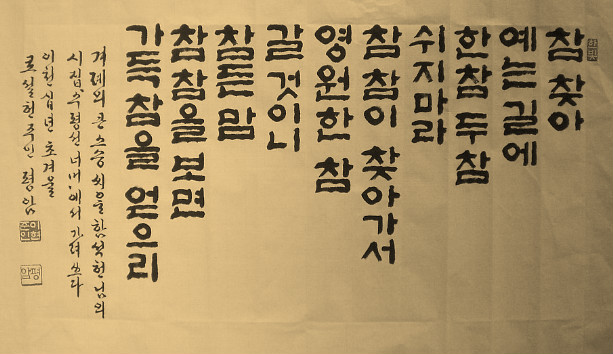 참 찾아
예는 길에
한참 두 참
쉬지마라
참 참이 찾아가서
영원한 참
갈 것이니
참든 맘
참 참을 보면
가득 참을 얻으리
겨레의 큰 스승 씨올 함석헌님의
시집 수평선 너머에서 가려 쓰다
이천십년 초겨울
주인 평암